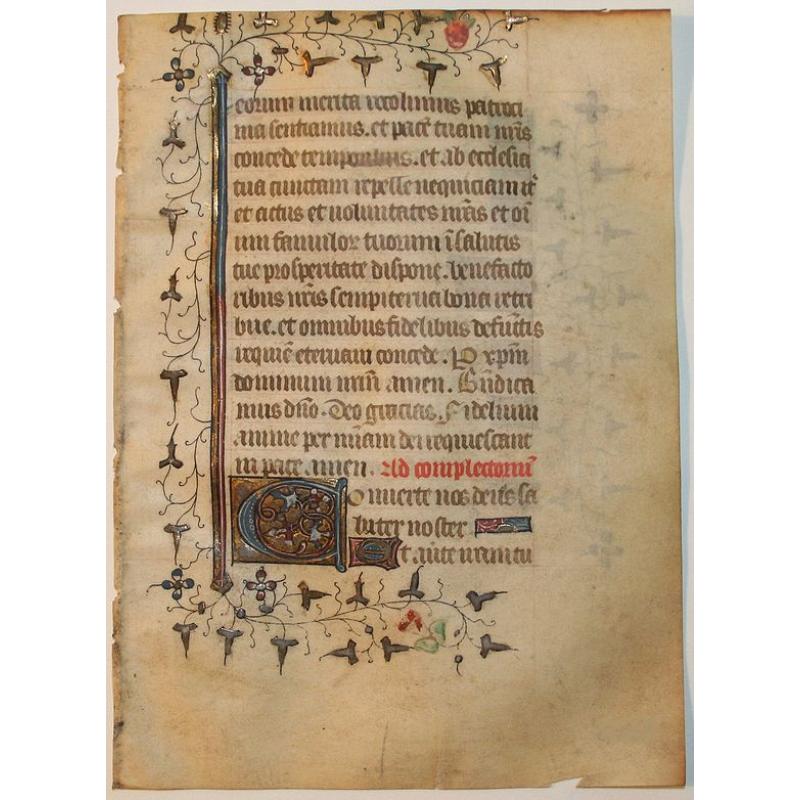 eorum merita recolimus patroci
nia sentiamus. et pacē tuam nr̄is
concede temporibus. et ab ecclesia
tua cunctam repelle nequiciam it̄
et actus et uoluntates nr̄as et oī
um famulor tuorum ī salutis
tue prosperitate dispone. benefacto
ribus nr̄is sempiterna bona retri
bue. et omnibus fidelibus defunctis
requiē eternam concede. P xp̄m
dominum nrm̄ amen. Bn̄dica
mus dn̄o. Deo gracias. Fidelium
anime per mīam dei requiescant
in pace. amen. Ad complectoriū
Conuerte nos deus sa
lutter noster
Et auerte iram tu